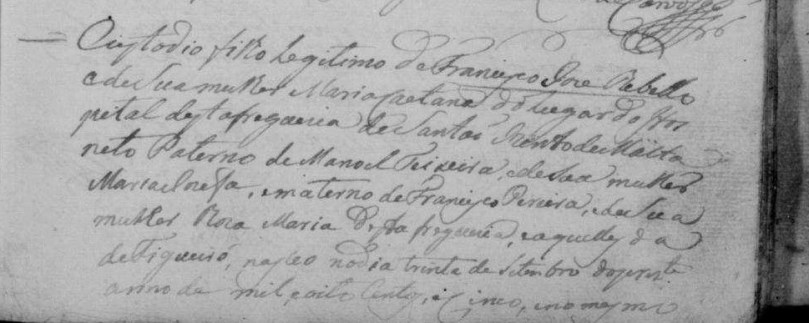 Custodio filho legitimo de Francisco Joze Rebello
e de sua mulher Maria Caetana do lugar do Hos
pital desta freguezia de Santa
neto Paterno de Manoel Teixeira, e de sua mulher
Maria Josefa, e materno de Francisco Pereira, e de sua
mulher Roza Maria Desta freguezia, e aquelles da
de Figueiró, nasceo no dia trinta de Setembro do prezte
anno de mil, e oito Centos, e Cinco, e no mesmo